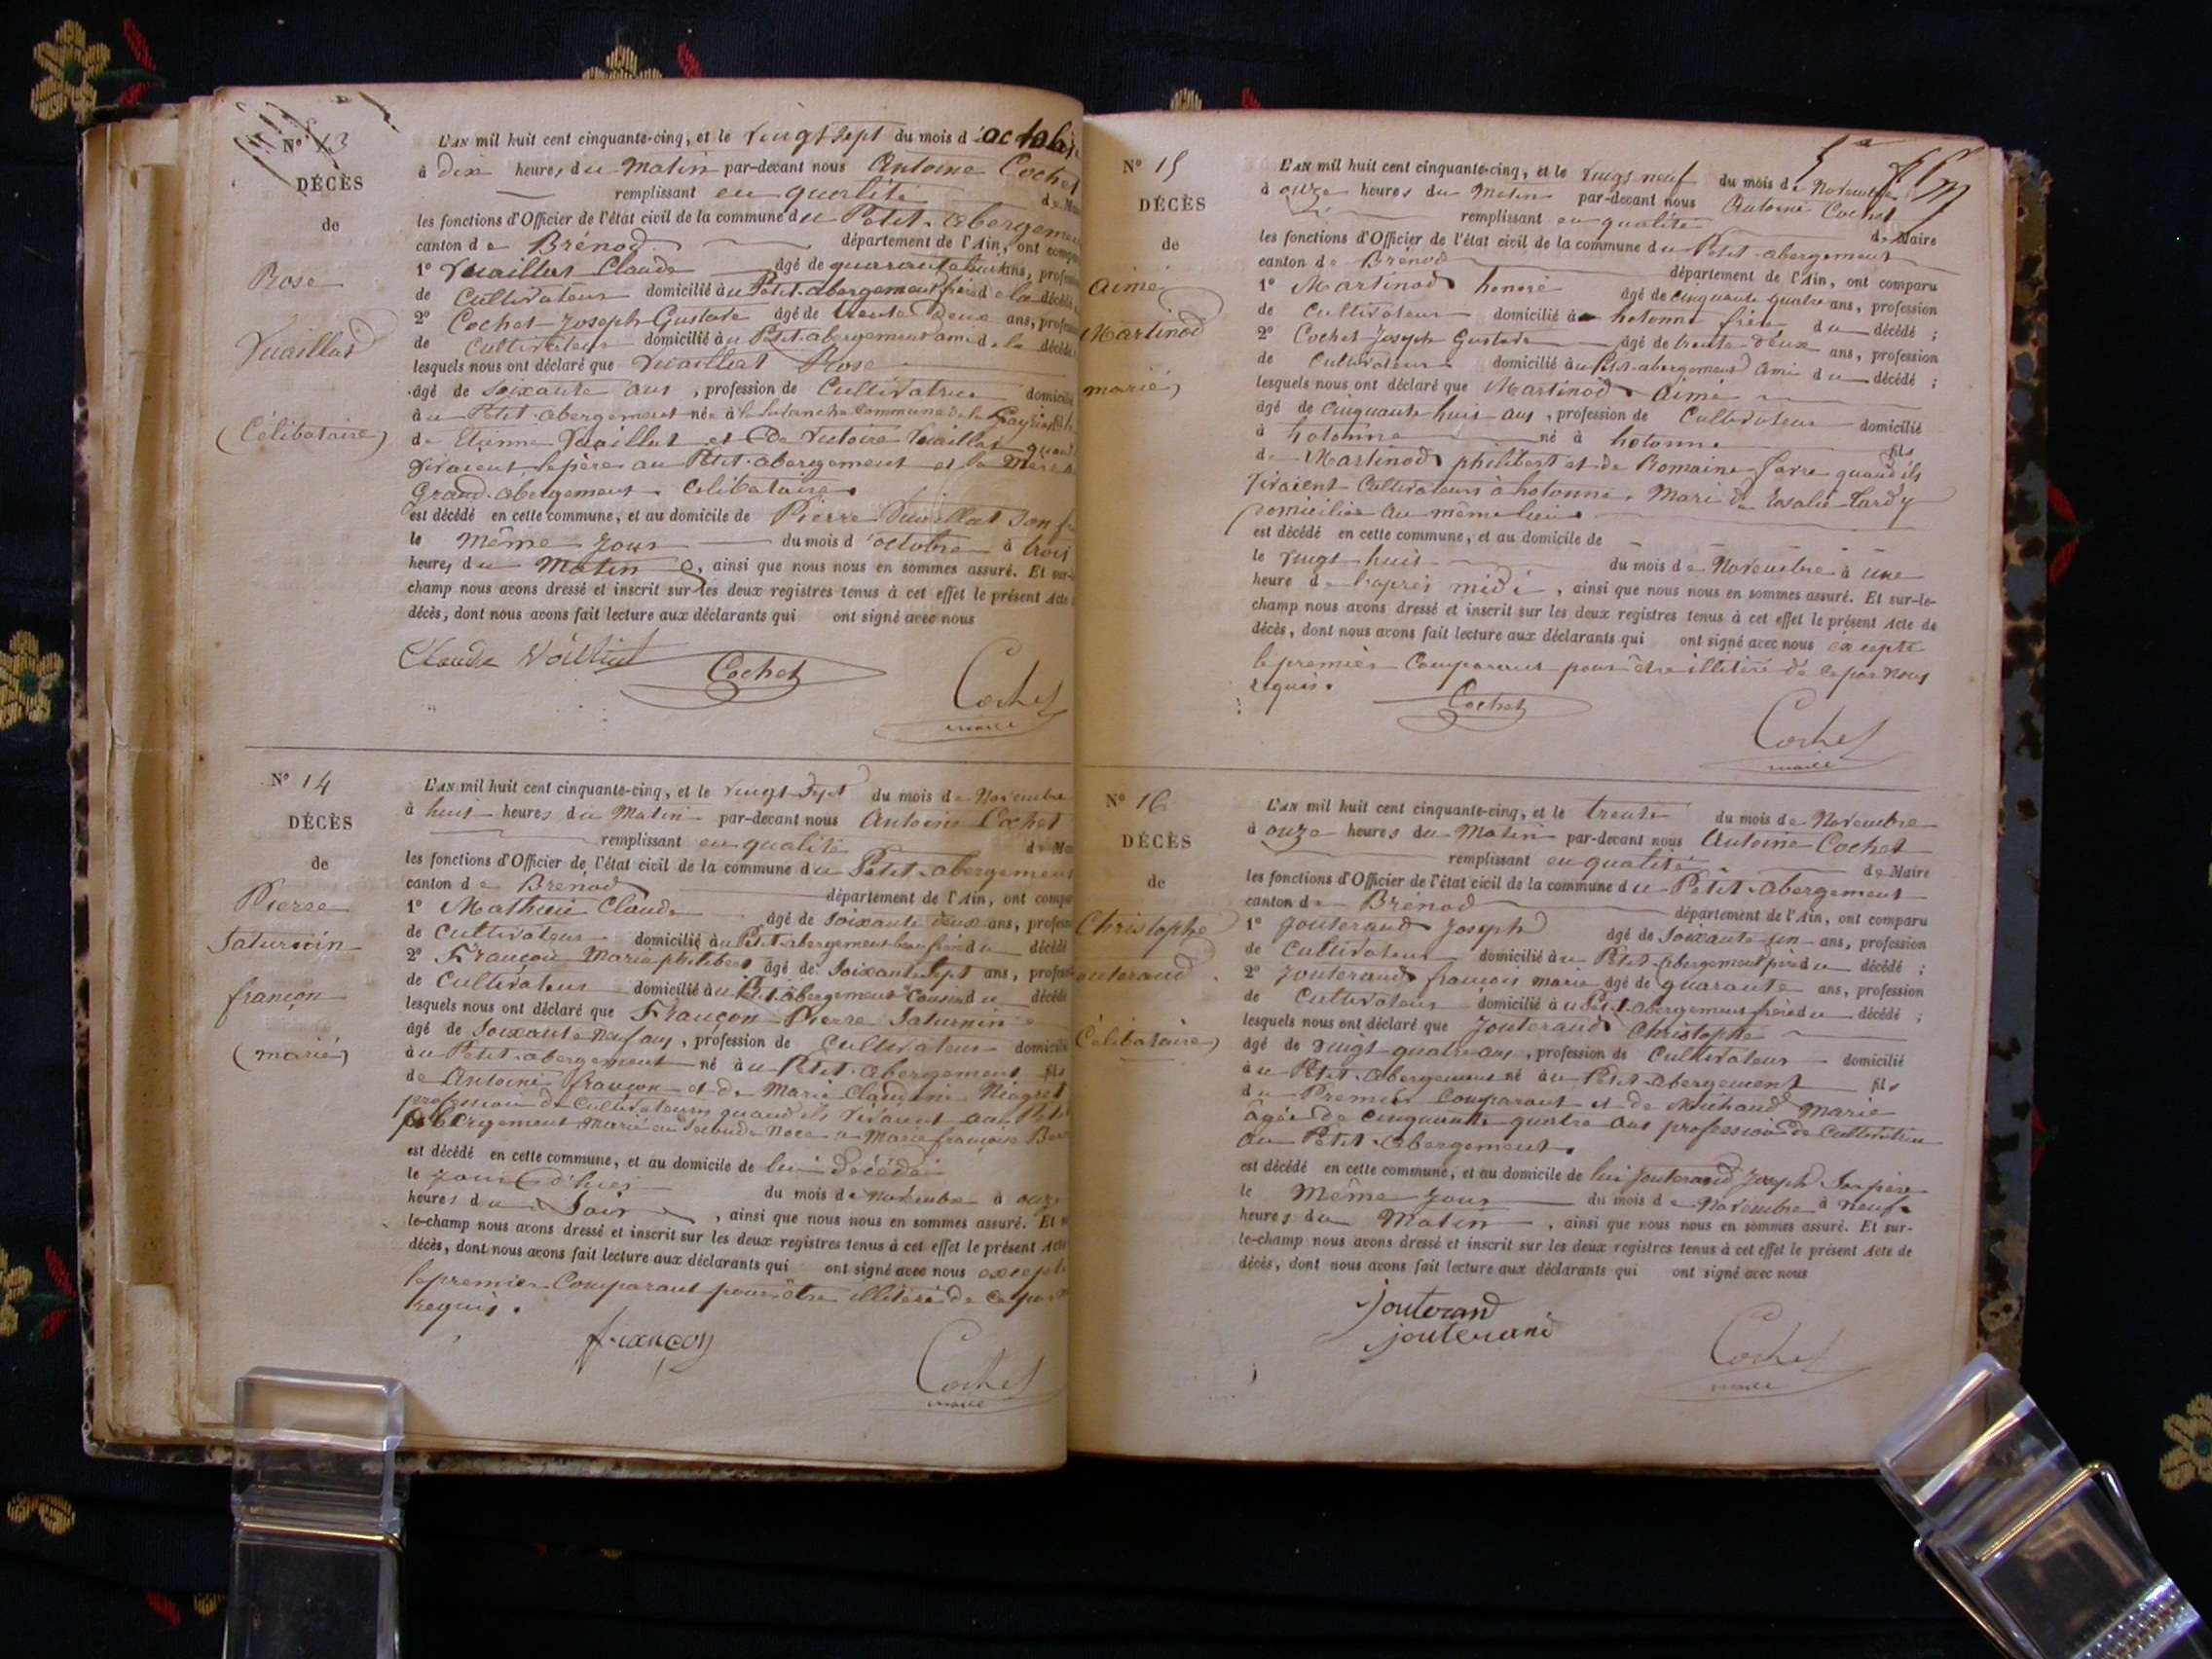 N° 13
DÉCÈS
de
Rose
Vuaillat
(Célibataire)
L'AN mil huit cent cinquante-cinq, et le vingt sept du mois d'octobre
à dix heures du Matin par-devant nous Antoine Cochet
remplissant en qualité de
les fonctions d'Officier de l'état civil de la commune du Petit-abergement
canton de Brénod département de l'Ain, ont
1° Vuaillat Claude âgé de quarante huit ans,
de Cultivateur domicilié au Petit-abergement frère de la décédée
2° Cochet Joseph Gustave âgé de trente deux ans,
de Cultivateur domicilié au Petit-abergement ami de la décédée
lesquels nous ont déclaré que Vuaillat Rose
âgé de Soixante ans, profession de Cultivatrice
au Petit-abergement née à Commune de
de Etienne Vuaillat et de Victoire Vuaillat
vivaient le père au Petit-abergement et la Mère
Grand-abergement. Célibataire.
est décédé en cette commune, et au domicile de Pierre Vuaillat Son
le Même Jour du mois d'octobre à trois
heures du Matin, ainsi que nous nous en sommes assuré. Et
champ nous avons dressé et inscrit sur les deux registres tenus à cet effet le présent Acte
décès, dont nous avons fait lecture aux déclarants qui ont signé avec nous
Claude
Cochet
Cochet
maire
N° 14
DÉCÈS
de
Pierre
Saturnin
françon
(marié)
L'AN mil huit cent cinquante-cinq, et le vingt Sept du mois de Novembre
à huit heures du Matin par-devant nous Antoine Cochet
remplissant en qualité de
les fonctions d'Officier de l'état civil de la commune du Petit-abergement
canton de Brénod département de l'Ain, ont
1° Claude âgé de Soixante deux ans,
de Cultivateur domicilié au Petit-abergement beau frère du décédé
2° Françon Marie philibert âgé de Soixante Sept ans,
de Cultivateur domicilié au Petit-abergement Cousin du décédé
lesquels nous ont déclaré que Françon Pierre Saturnin
âgé de Soixante neuf ans, profession de Cultivateur
au Petit-abergement né au Petit-abergement fils
de Antoine françon et de Marie Claudine
profession de Cultivateurs quand ils vivaient au Petit
abergement Marié en Seconde Noce à Marie françoise
est décédé en cette commune, et au domicile de lui décédé
le jour d'hier du mois de Novembre à onze
heures du Soir, ainsi que nous nous en sommes assuré. Et
le-champ nous avons dressé et inscrit sur les deux registres tenus à cet effet le présent Acte
décès, dont nous avons fait lecture aux déclarants qui ont signé avec nous excepté
le premier Comparant pour être illitéré de ce par
requis.
françon
Cochet
maire
N° 15
DÉCÈS
de
Aimé
Martinod
marié)
L'AN mil huit cent cinquante-cinq, et le vingt neuf du mois de Novembre
à onze heures du Matin par-devant nous Antoine Cochet
remplissant en qualité de Maire
les fonctions d'Officier de l'état civil de la commune du Petit-abergement
canton de Brénod département de l'Ain, ont comparu
1° Martinod honoré âgé de cinquante quatre ans, profession
de Cultivateur domicilié à hotonne frère du décédé ;
2° Cochet Joseph Gustave âgé de trente deux ans, profession
de Cultivateur domicilié au Petit-abergement ami du décédé ;
lesquels nous ont déclaré que Martinod Aimé
âgé de Cinquante huit ans, profession de Cultivateur domicilié
à hotonne né à hotonne fils
de Martinod philibert et de Romaine favre quand ils
vivaient Cultivateurs à hotonne, Mari de Rosalie Tardy
domiciliée au même lieu.
est décédé en cette commune, et au domicile de
le vingt huit du mois de Novembre à une
heure de l'après midi, ainsi que nous nous en sommes assuré. Et sur-le-
champ nous avons dressé et inscrit sur les deux registres tenus à cet effet le présent Acte de
décès, dont nous avons fait lecture aux déclarants qui ont signé avec nous excepté
le premier Comparant pour être illitéré de ce par nous
requis.
Cochet
Cochet
maire
N° 16
DÉCÈS
de
Christophe
outeraud
Célibataire)
L'AN mil huit cent cinquante-cinq, et le trente du mois de Novembre
à onze heures du Matin par-devant nous Antoine Cochet
remplissant en qualité de Maire
les fonctions d'Officier de l'état civil de la commune du Petit-abergement
canton de Brénod département de l'Ain, ont comparu
1° Jouteraud Joseph âgé de Soixante un ans, profession
de Cultivateur domicilié au Petit-abergement père du décédé ;
2° Jouteraud françois marie âgé de quarante ans, profession
de Cultivateur domicilié au Petit-abergement frère du décédé ;
lesquels nous ont déclaré que Jouteraud Christophe
âgé de vingt quatre ans, profession de Cultivateur domicilié
au Petit-abergement né au Petit-abergement fils
du Premier Comparant et de Michaud Marie
âgée de cinquante quatre ans profession de Cultivatrice
au Petit-abergement.
est décédé en cette commune, et au domicile de lui Jouteraud Joseph Son père
le Même Jour du mois de Novembre à neuf
heures du Matin, ainsi que nous nous en sommes assuré. Et sur-
le-champ nous avons dressé et inscrit sur les deux registres tenus à cet effet le présent Acte de
décès, dont nous avons fait lecture aux déclarants qui ont signé avec nous
jouterand
jouterand
Cochet
maire